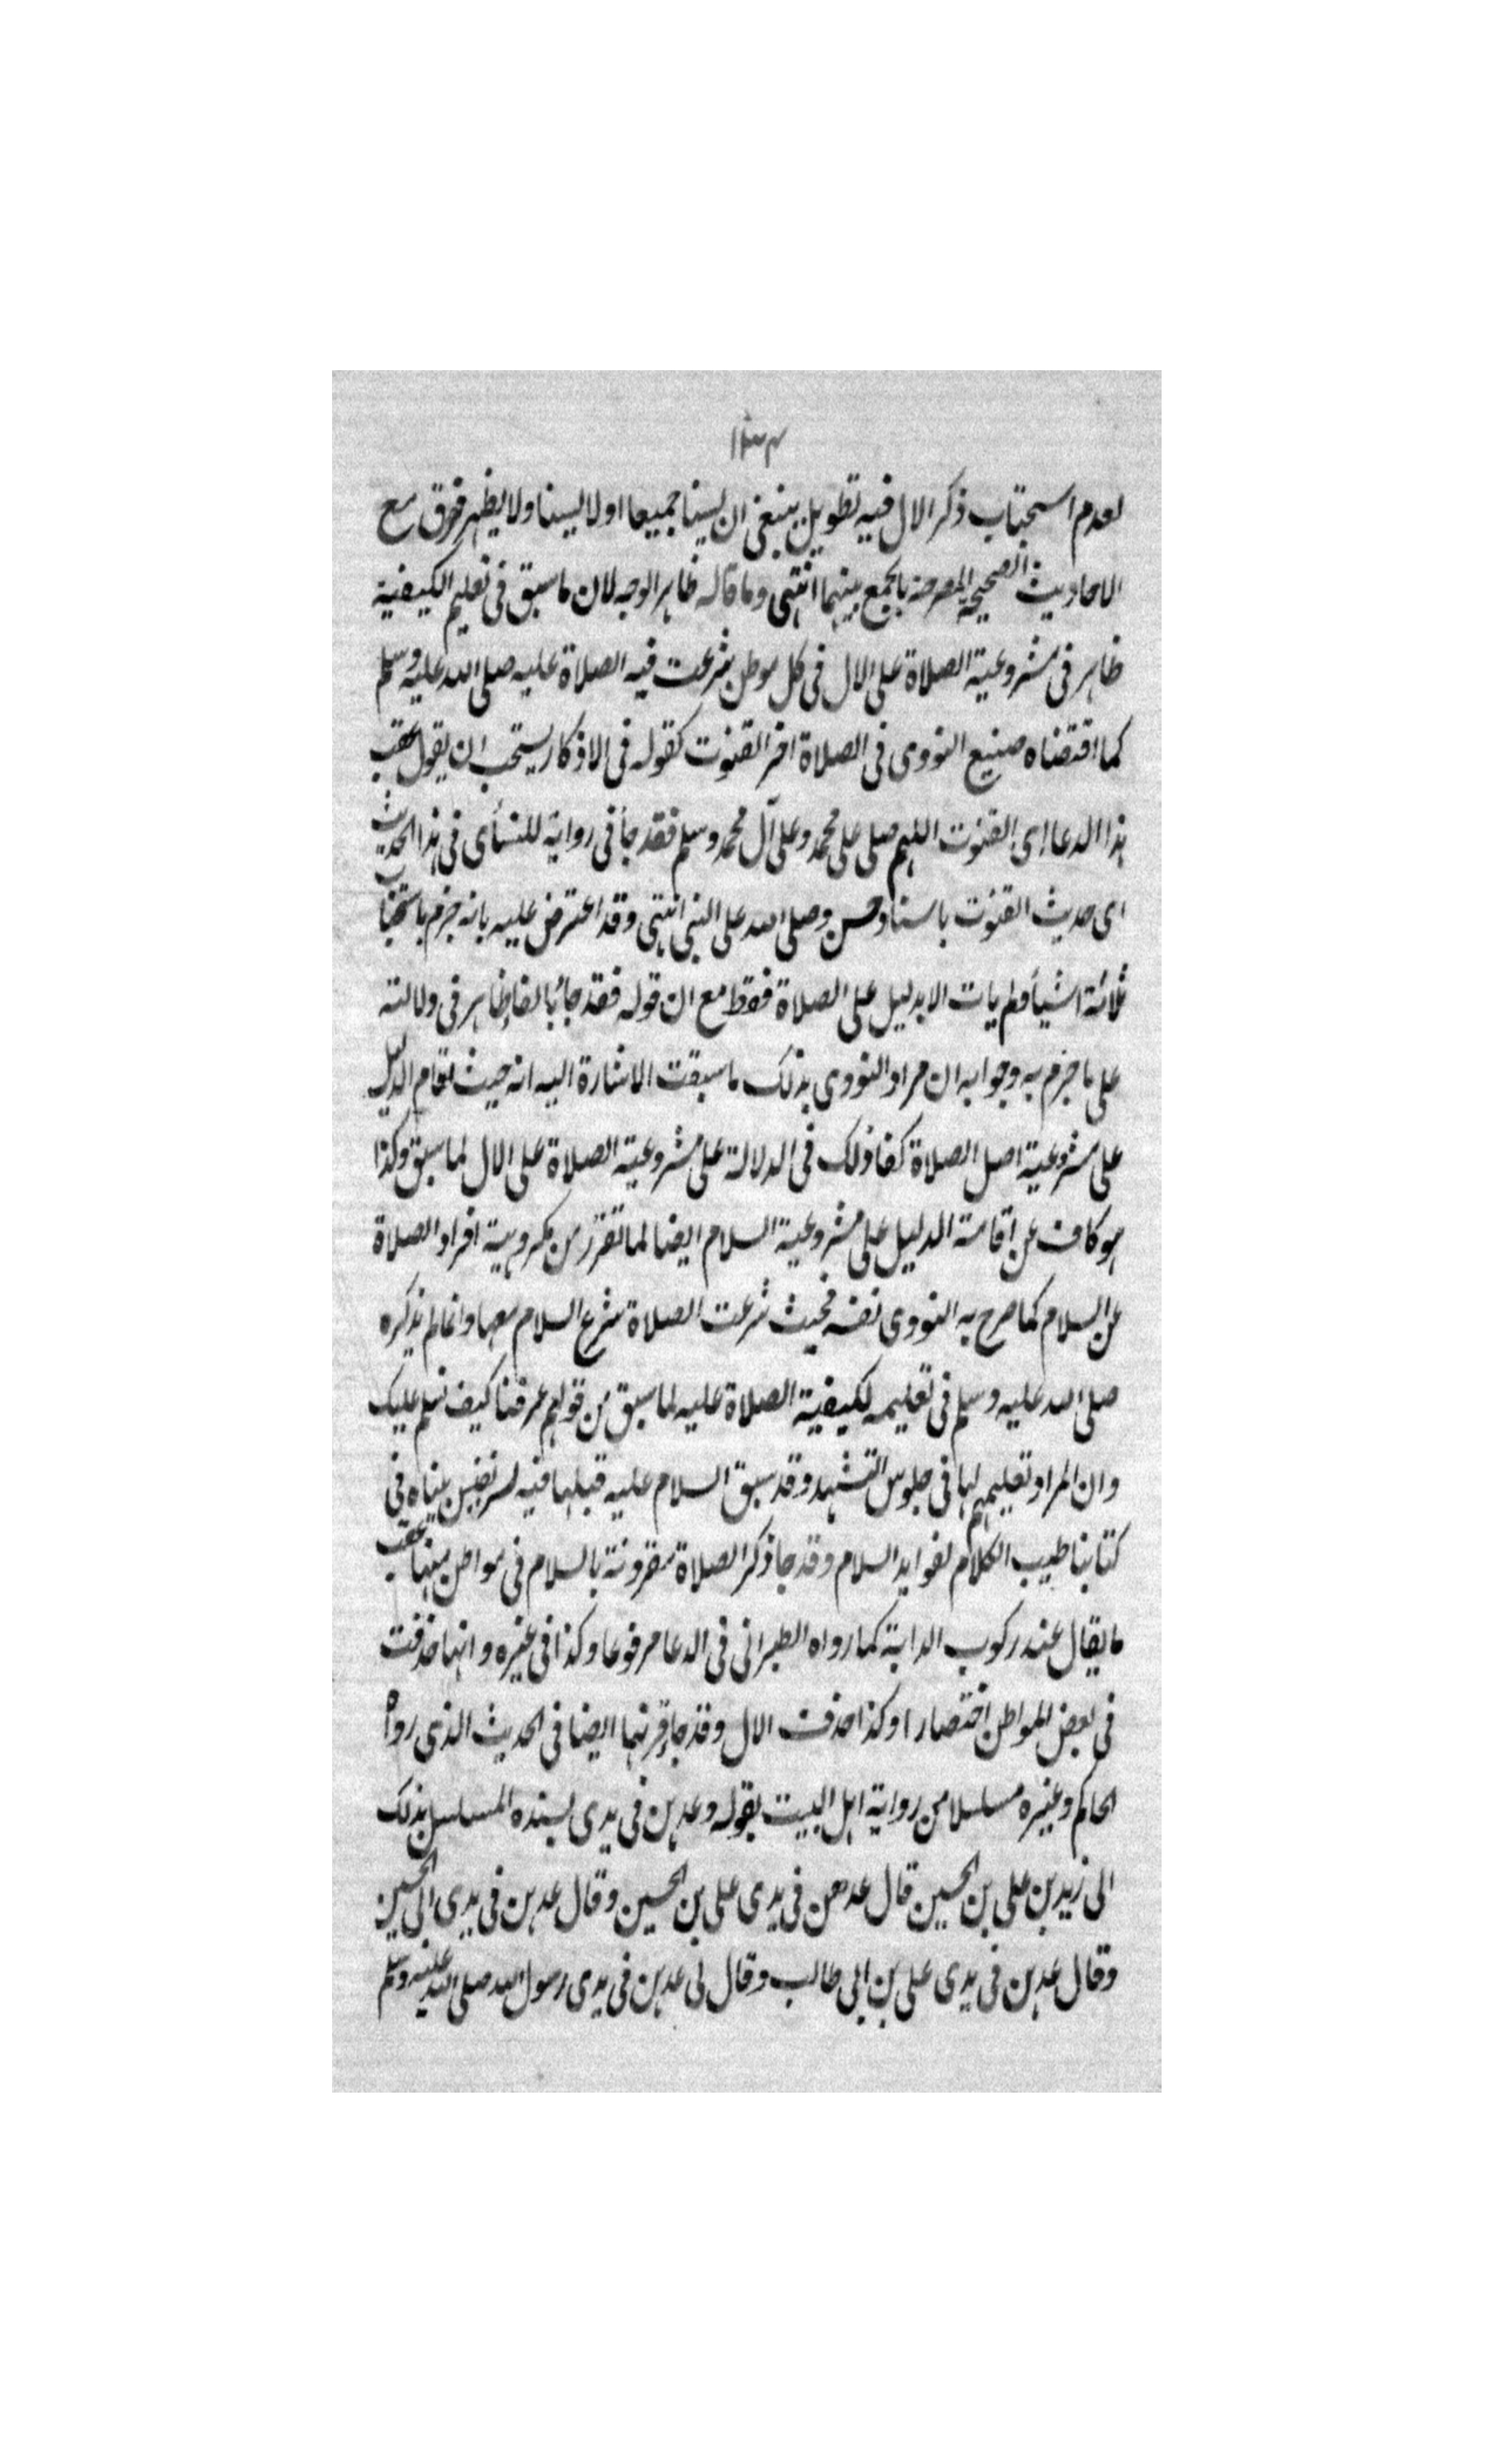 ١٣٣
لعدم استحباب ذكر الال فيه تطويل ينبغى ان يسنا جميعا او لا يسنا ولا يظهر فرق مع
الاحاديث الصحيحة المصرحة بالجمع بينهما انتهى وما قاله ظاهر الوجه لان ما سبق فى تعليم الكيفية
ظاهر فى مشروعية الصلاة على الال فى كل موطن شرعت فيه الصلاة عليه صلى الله عليه وسلم
كما اقتضاه صنيع النووى فى الصلاة اخر القنوت كقوله فى الاذكار يستحب ان يقول عقب
هذا الدعا اى القنوت اللهم صلى على محمد وعلى آل محمد وسلم فقد جأ فى رواية للنسأى فى هذا الحديث
اى حديث القنوت باسناد حسن وصلى الله على النبى انتهى وقد اعترض عليه بانه جزم باستحباب
ثلاثة اشيأ ولم يات الا بدليل على الصلاة فقط مع ان قوله فقد جأ بالفأ ظاهر فى دلالته
على ما جزم به وجوابه ان مراد النووى بذلك ما سبقت الاشارة اليه انه حيث تقام الدليل
على مشروعية اصل الصلاة كفا ذلك فى الدلالة على مشروعية الصلاة على الال لما سبق وكذا
هو كاف عن اقامة الدليل على مشروعية السلام ايضا لما تقرر من مكروهية افراد الصلاة
عن السلام كما صرح به النووى نفسه فحيث شرعت الصلاة شرع السلام معها وانما لم يذكره
صلى الله عليه وسلم فى تعليمه لكيفية الصلاة عليه لما سبق من قولهم عرفنا كيف نسلم عليك
وان المراد تعليمهم لها فى جلوس التشهد وقد سبق السلام عليه قبلها فيه لسر نفيس بيناه فى
كتابنا طيب الكلام لفوايد السلام وقد جا ذكر الصلاة مقرونة بالسلام فى مواطن منها عقب
ما يقال عند ركوب الدابة كما رواه الطبرانى فى الدعا مرفوعا وكذا فى غيره وانها حذفت
فى بعض المواطن اختصارا وكذا حذف الال وقد جأ قرنها ايضا فى الحديث الذى رواه
الحاكم وغيره مسلسلا من رواية اهل البيت بقوله وعدهن فى يدى بسنده المسلسل بذلك
الى زيد بن على بن الحسين قال عدهن فى يدى على بن الحسين وقال عدهن فى يدى ابى الحسين
وقال عدهن فى يدى على بن ابى طالب وقال لى عدهن فى يدى رسول الله صلى الله عليه وسلم